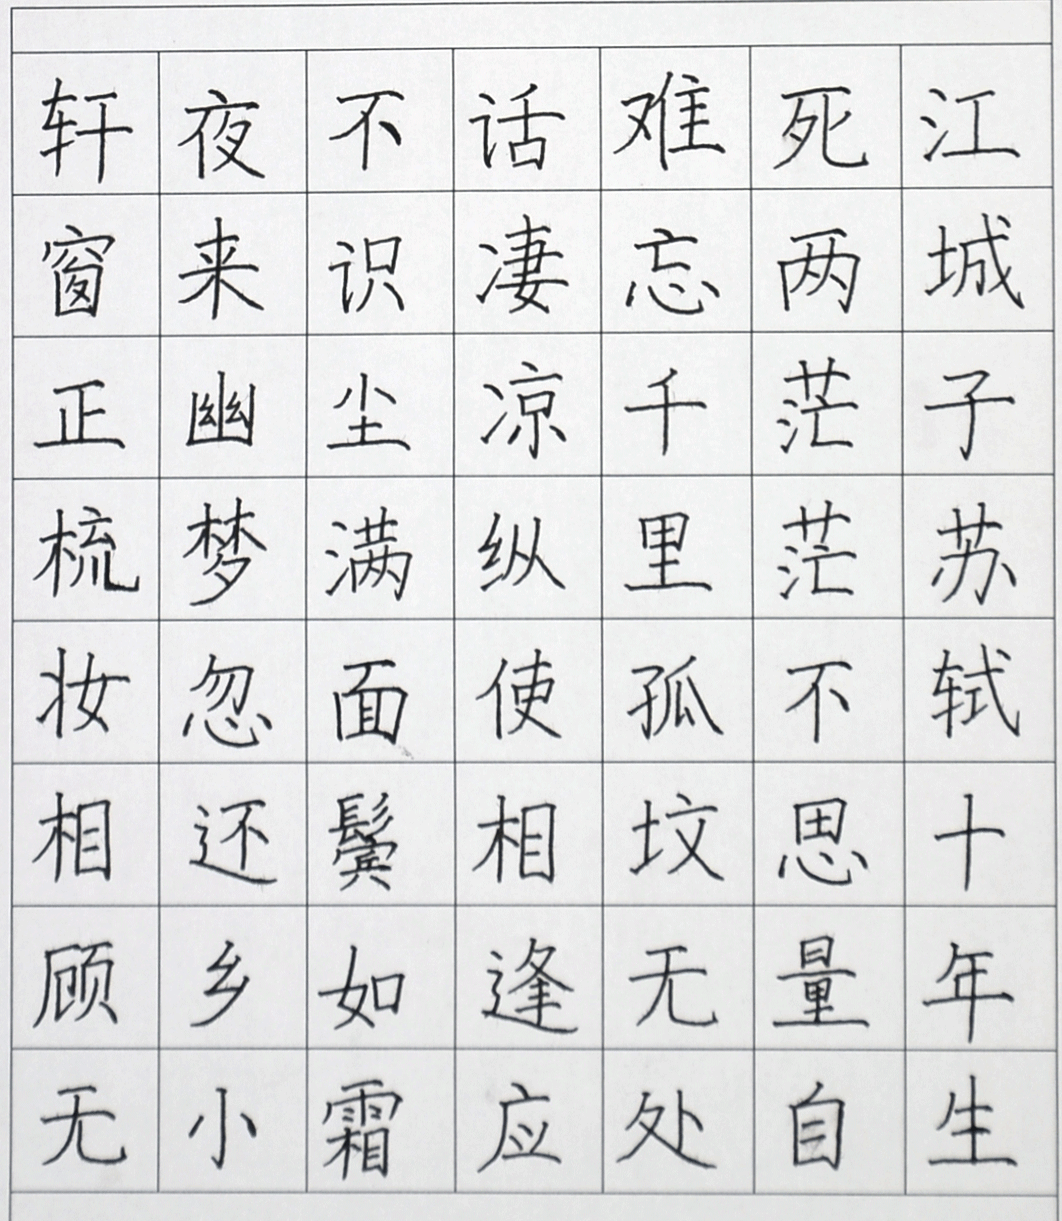 江城子苏轼十年生
死两茫茫不思量自
难忘千里孤坟无处
话凄凉纵使相逢应
不识尘满面鬓如霜
夜来幽梦忽还乡小
轩窗正梳妆相顾无